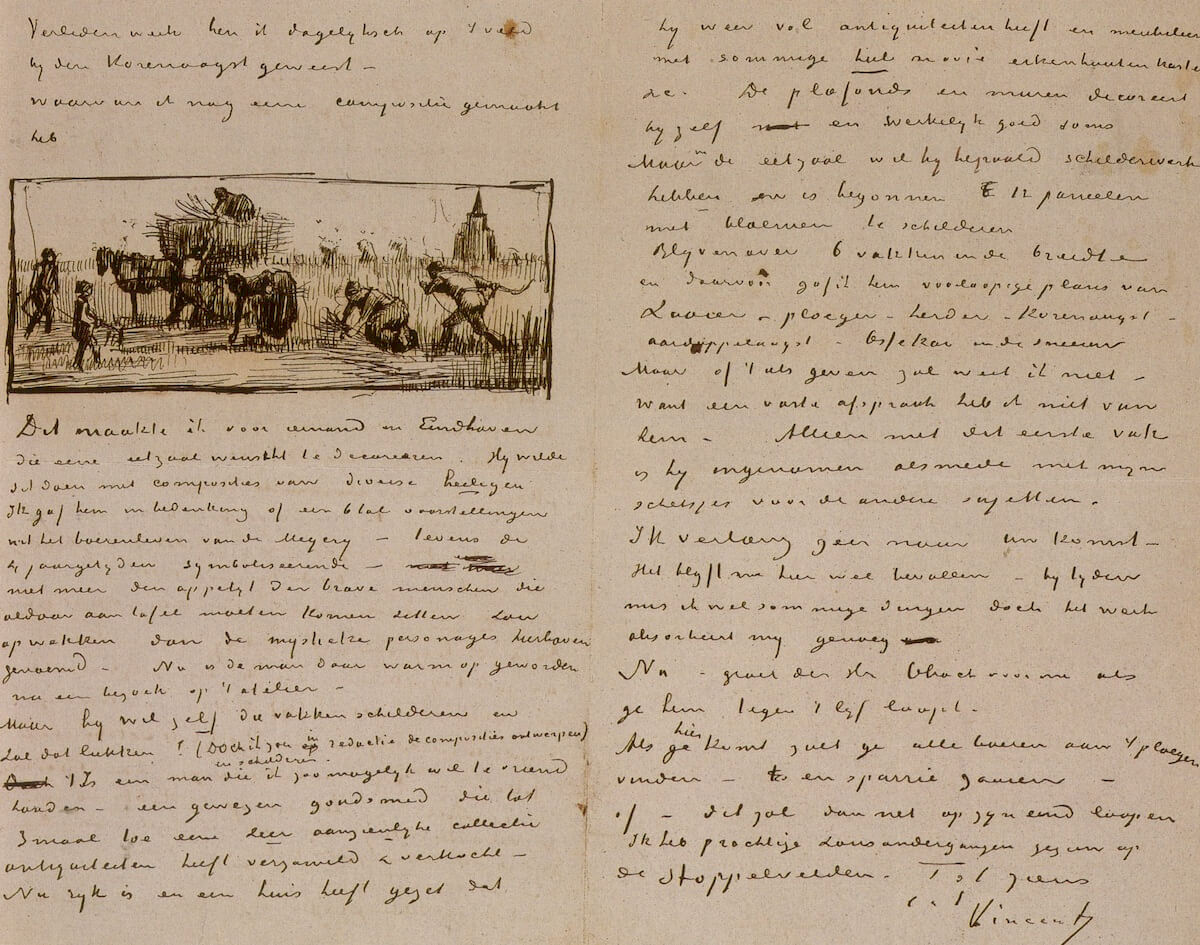 Verleden week ben ik dagelyksch op 't veld
by den Korenoogst geweest –
waarvan ik nog eene compositie gemaakt
heb
Dit maakte ik voor iemand in Eindhoven
die eene eetzaal wenscht te decoreeren. Hy wilde
dit doen met composities van diverse heiligen
Ik gaf hem in bedenking of een 6tal voorstellingen
uit het boerenleven van de Meyery – tevens de
4 jaargetyden symboliseerende –
niet meer den appetyt der brave menschen die
aldaar aan tafel moeten komen zitten zou
opwekken dan de mystieke personages hierboven
genoemd – Nu is de man daar warm op geworden
na een bezoek op 't atelier –
Maar hy wil zelf die vakken schilderen en
zal dat lukken? (Doch ik zou in redactie de composities ontwerpen)
en schilderen.
't Is een man die ik zoo mogelyk wil te vriend
houden – een gewezen goudsmid die tot
3 maal toe eene zeer aanzienlyke collectie
antiquiteiten heeft verzameld & verkocht –
Nu ryk is en een huis heeft gezet dat
hy weer vol antiquiteiten heeft en meubileer
met sommige heel mooie eikenhouten kaste
&c. De plafonds en muren decoreert
hy zelf en werkelyk goed soms
Maar in de eetzaal wil hy bepaald schilderwerk
hebben en is begonnen 12 paneelen
met bloemen te schilderen
Blyven over 6 vakken in de breedte
en daarvoor gaf ik hem voorloopige plans van
Zaaier – ploeger – herder – Korenoogst –
aardappeloogst – Ossekar in de sneeuw
Maar of 't iets geven zal weet ik niet –
want een vaste afspraak heb ik niet van
hem – Alleen met dit eerste vak
is hy ingenomen alsmede met myn
schetsjes voor de andere sujetten.
Ik verlang zeer naar uw komst –
Het blyft me hier wel bevallen – by tyden
mis ik wel sommige dingen doch het werk
absorbeert my genoeg
Nu – groet den Hr Wisch voor me als
ge hem tegen 't lyf loopt.
Als ge hier komt zult ge alle boeren aan 't ploegen
vinden – en sparrie zaaien –
of – dit zal dan net op zyn eind loopen
Ik heb prachtige zonsondergangen gezien op
de Stoppelvelden. Tot ziens
Vincent